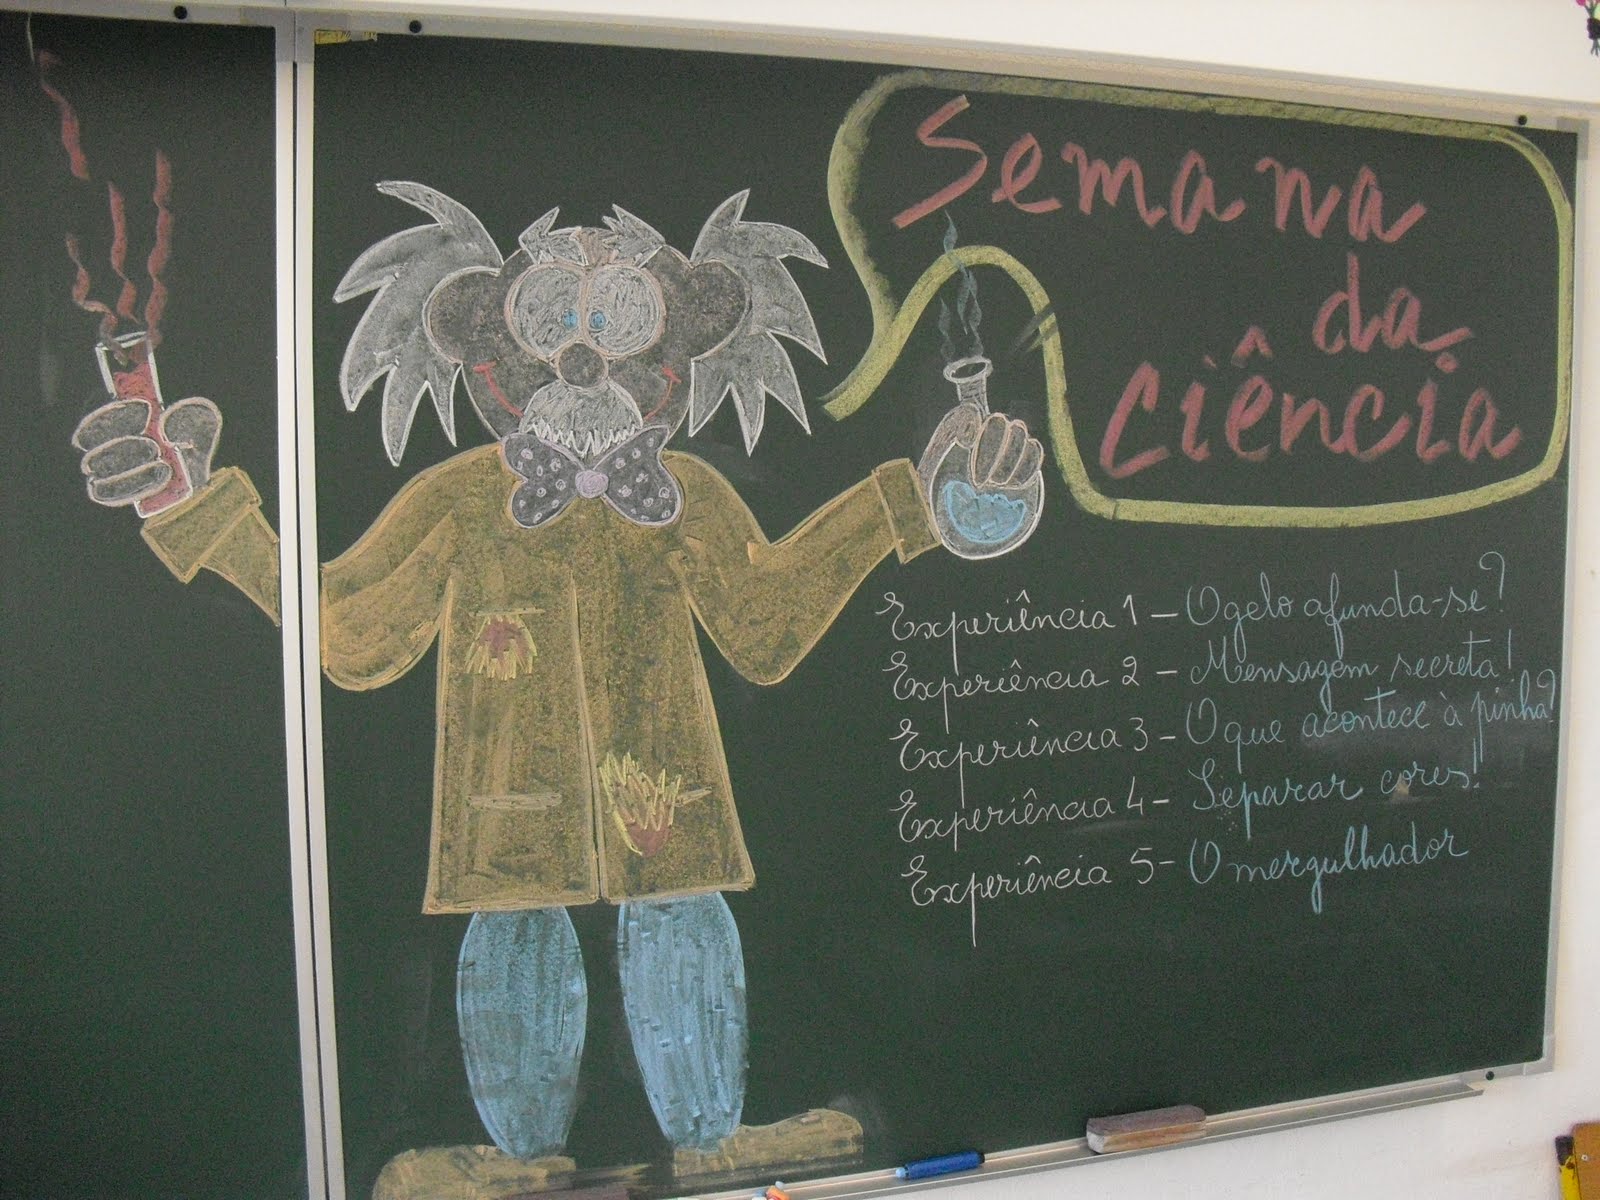 Semana
da
Ciência
Experiência 1 - O gelo afunda-se?
Experiência 2 - Mensagem secreta!
Experiência 3 - O que acontece à pinha?
Experiência 4 - Separar cores!
Experiência 5 - O mergulhador